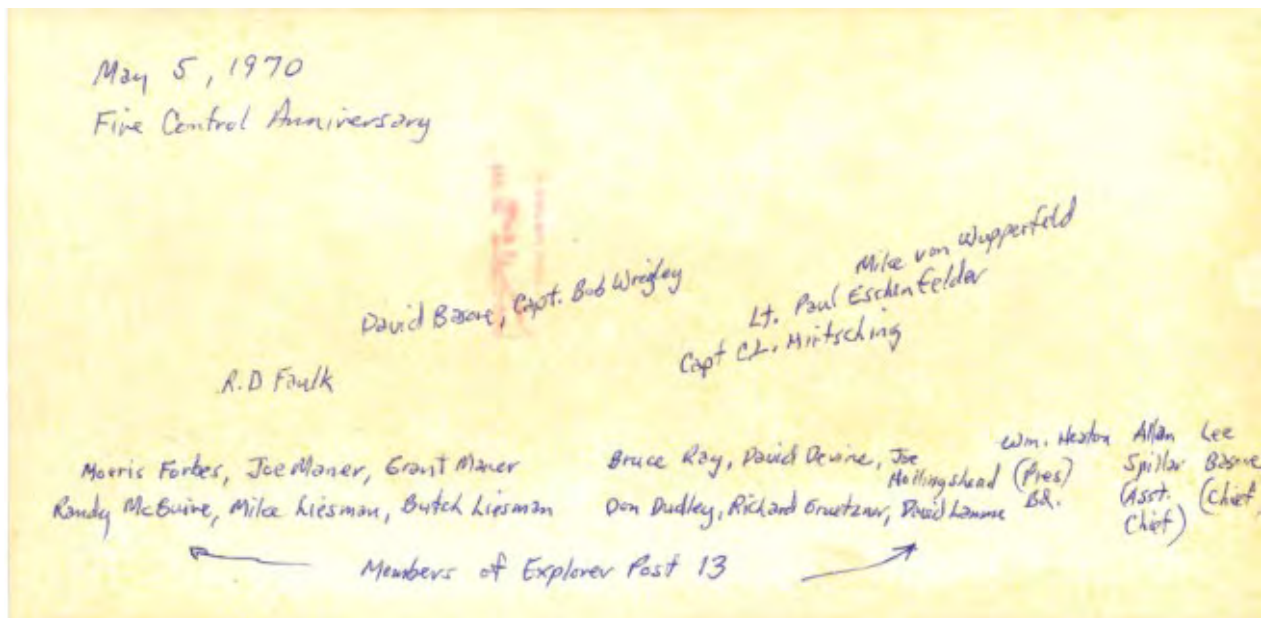 May 5, 1970
Fire Control Anniversary
Mike von Wupperfeld
Lt. Paul Eschenfelder
Capt C.L. Miitsching
David Basore, Capt. Bob Wrigley
R.D Faulk
Morris Forbes, Joe Maner, Grant Maner
Randy McGuire, Mike Liesman, Butch Liesman
Bruce Ray, David Devine, Joe
Hollingshead
Don Dudley, Richard Gruetzner, David Lamme
Wm. Heaton
(Pres)
Bd.
Allan
Spillar
(Asst.
Chief)
Lee
Basore
(Chief)
Members of Explorer Post 13